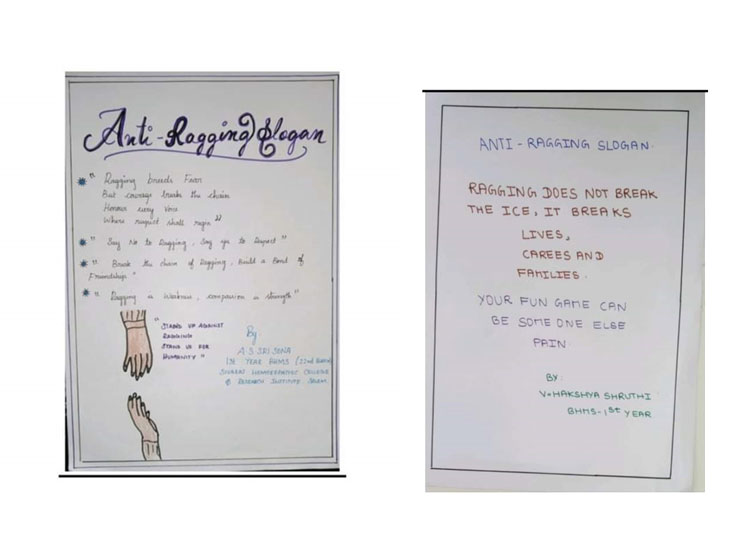 Anti-Ragging Slogan
" Ragging breeds Fear
But courage breaks the chain
Honour every Voice
Where respect shall reign "
" Say No to Ragging, Say yes to Respect "
" Break the chain of Ragging, Build a Bond of
Friendship "
" Ragging is Weakness, compassion is strength "
" STAND UP AGAINST
RAGGING
STAND UP FOR
HUMANITY "
By:
A S SRI
1st YEAR BHMS (22nd Batch)
HOMOEOPATHIC COLLEGE
& RESEARCH INSTITUTE
ANTI-RAGGING SLOGAN.
RAGGING DOES NOT BREAK
THE ICE, IT BREAKS
LIVES,
CAREES AND
FAMILIES.
YOUR FUN GAME CAN
BE SOME ONE ELSE
PAIN.
BY:
V.HAKSHYA SHRUTHI
BHMS-1st YEAR